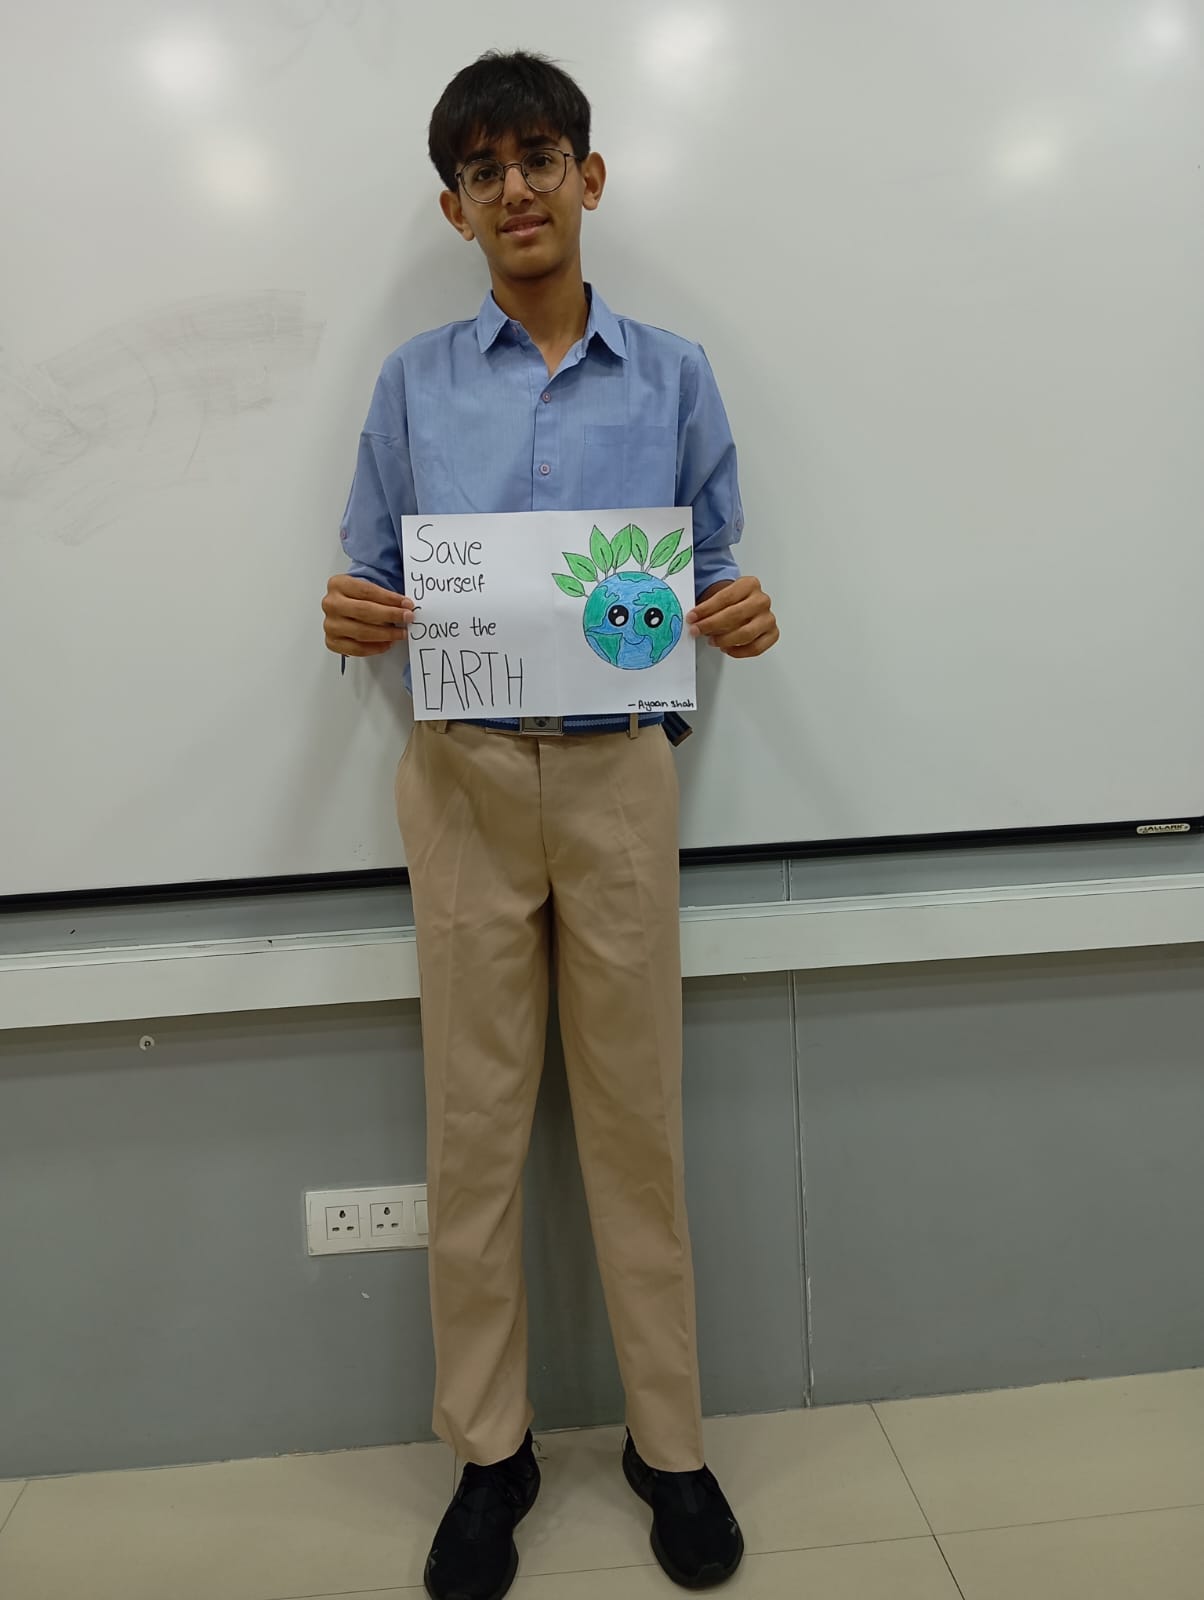 Save
yourself
Save the
EARTH
- Ayaan Shah